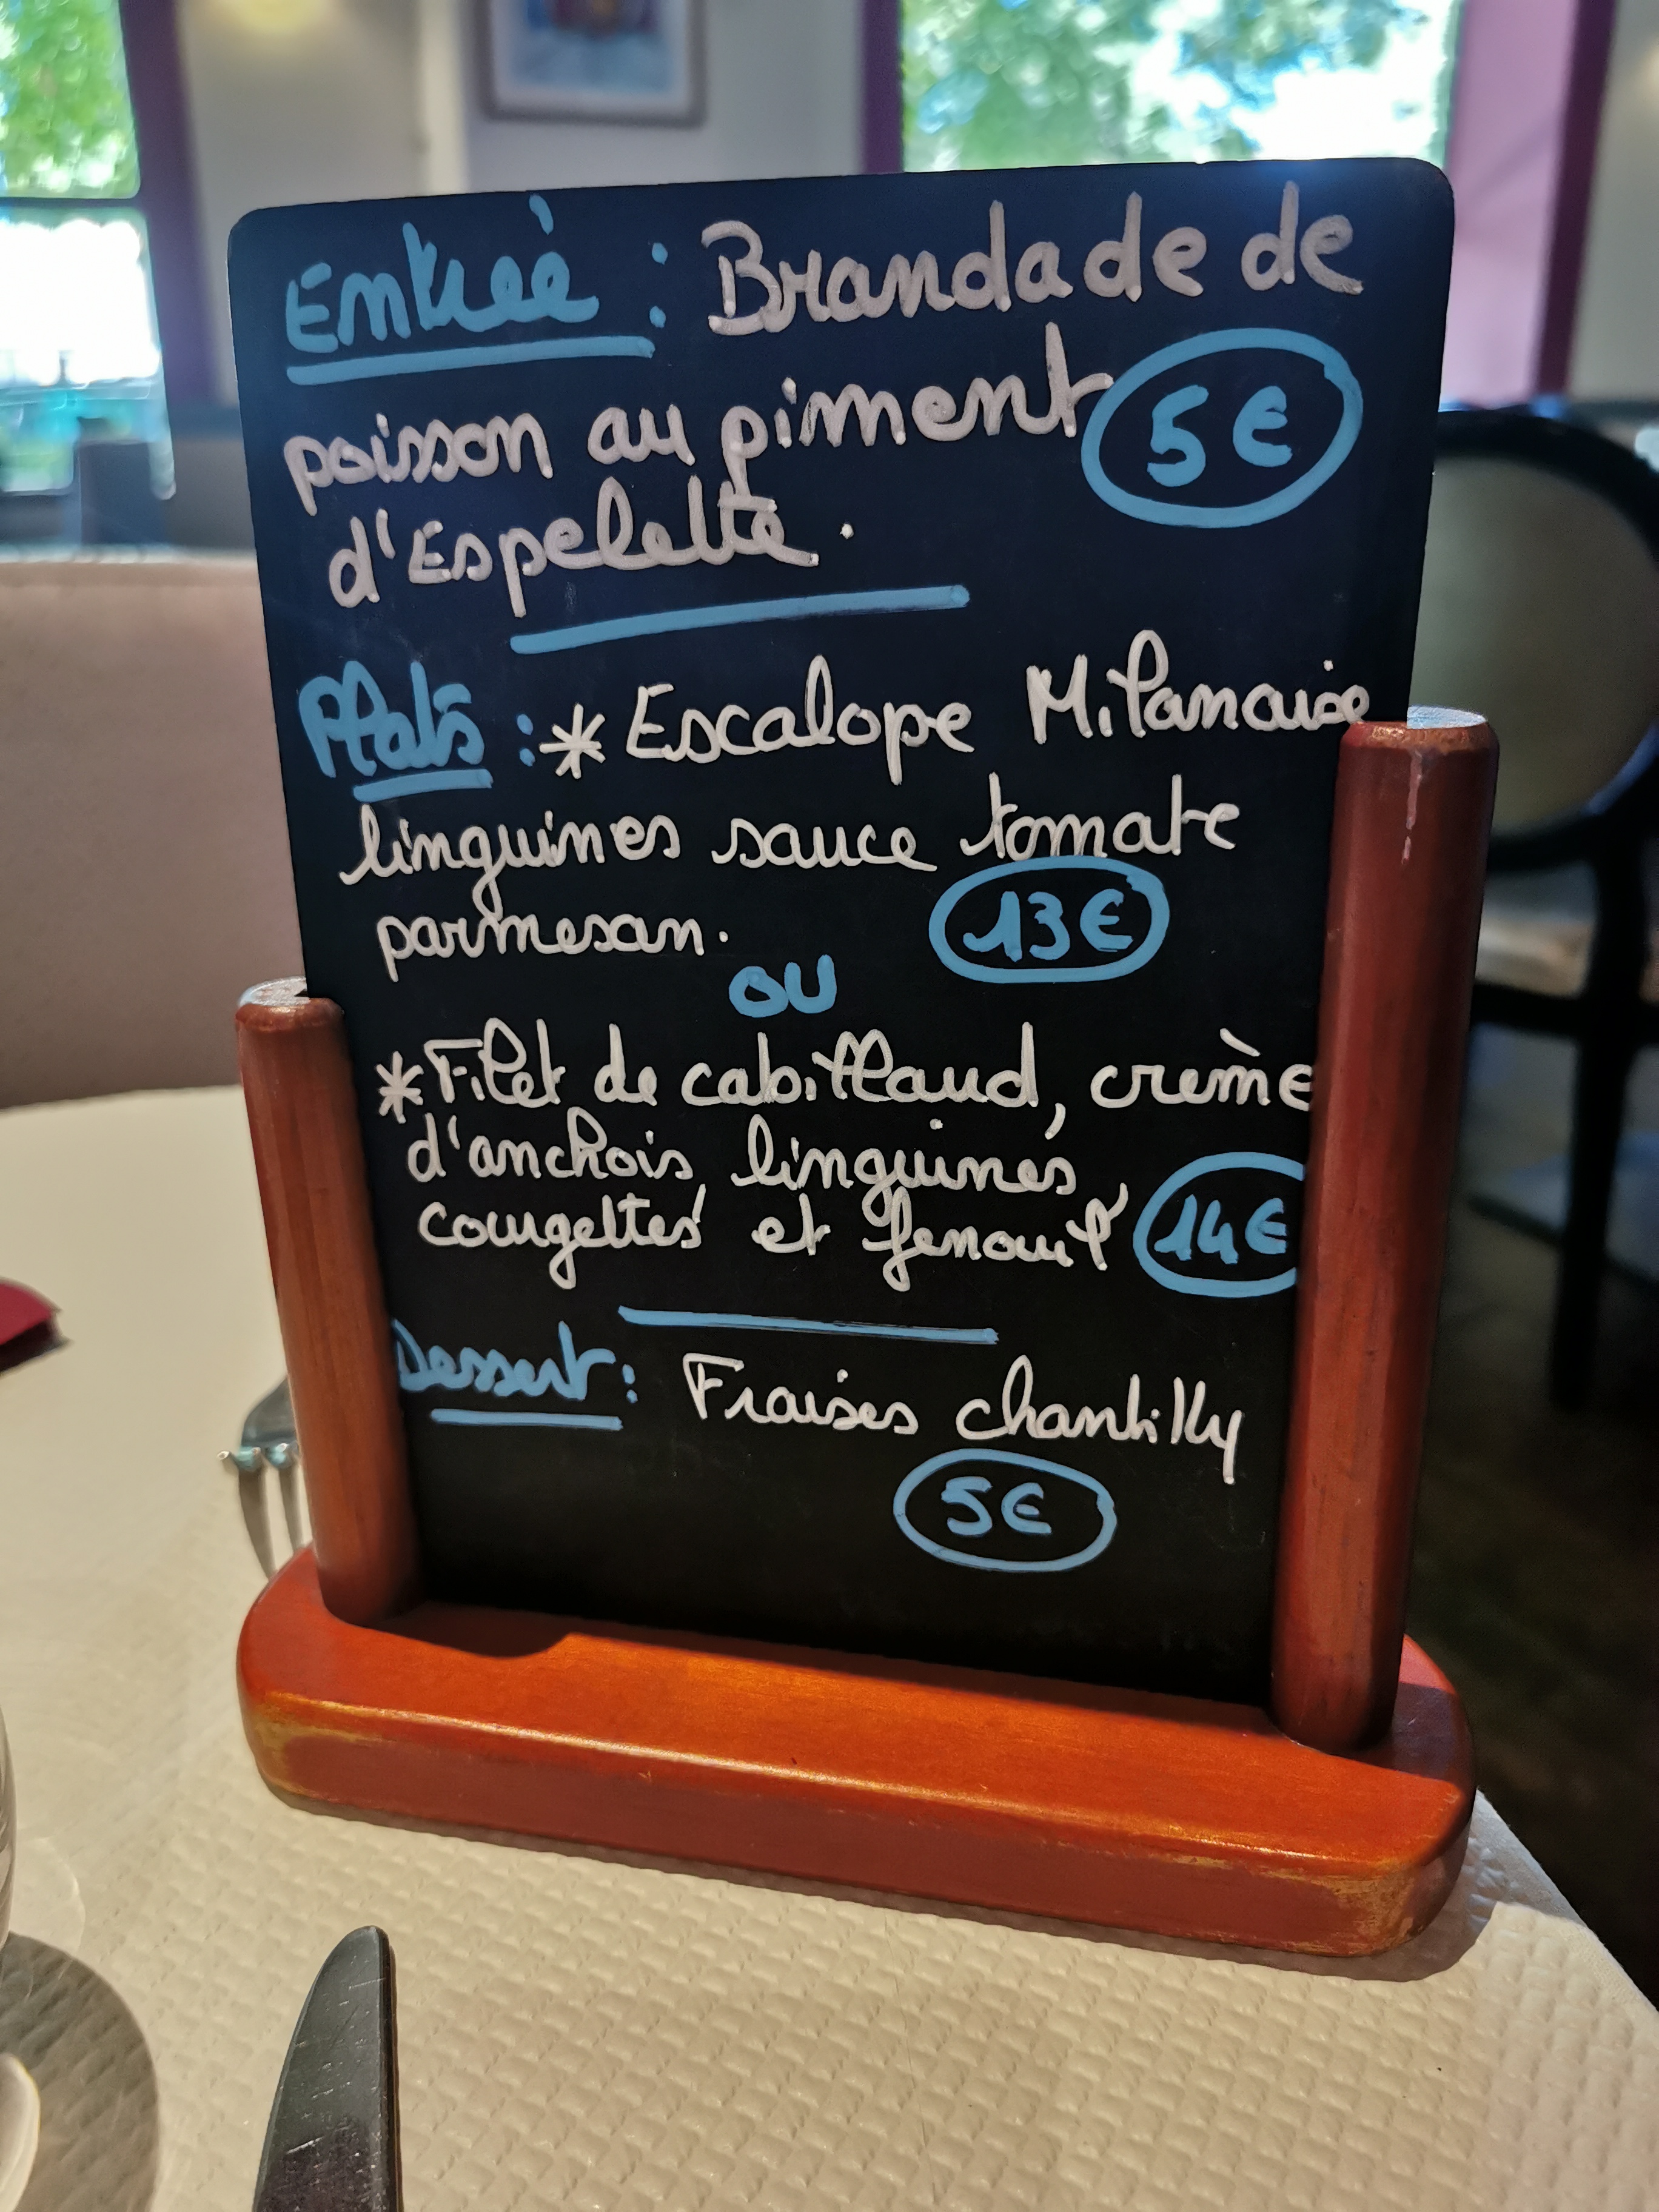 Entrée : Brandade de
poisson au piment 5€
d'Espelette.
Plats : * Escalope Milanaise
linguines sauce tomate
parmesan. 13€
OU
* Filet de cabillaud, crème
d'anchois, linguines,
courgettes et fenouil 14€
Dessert : Fraises chantilly
5€